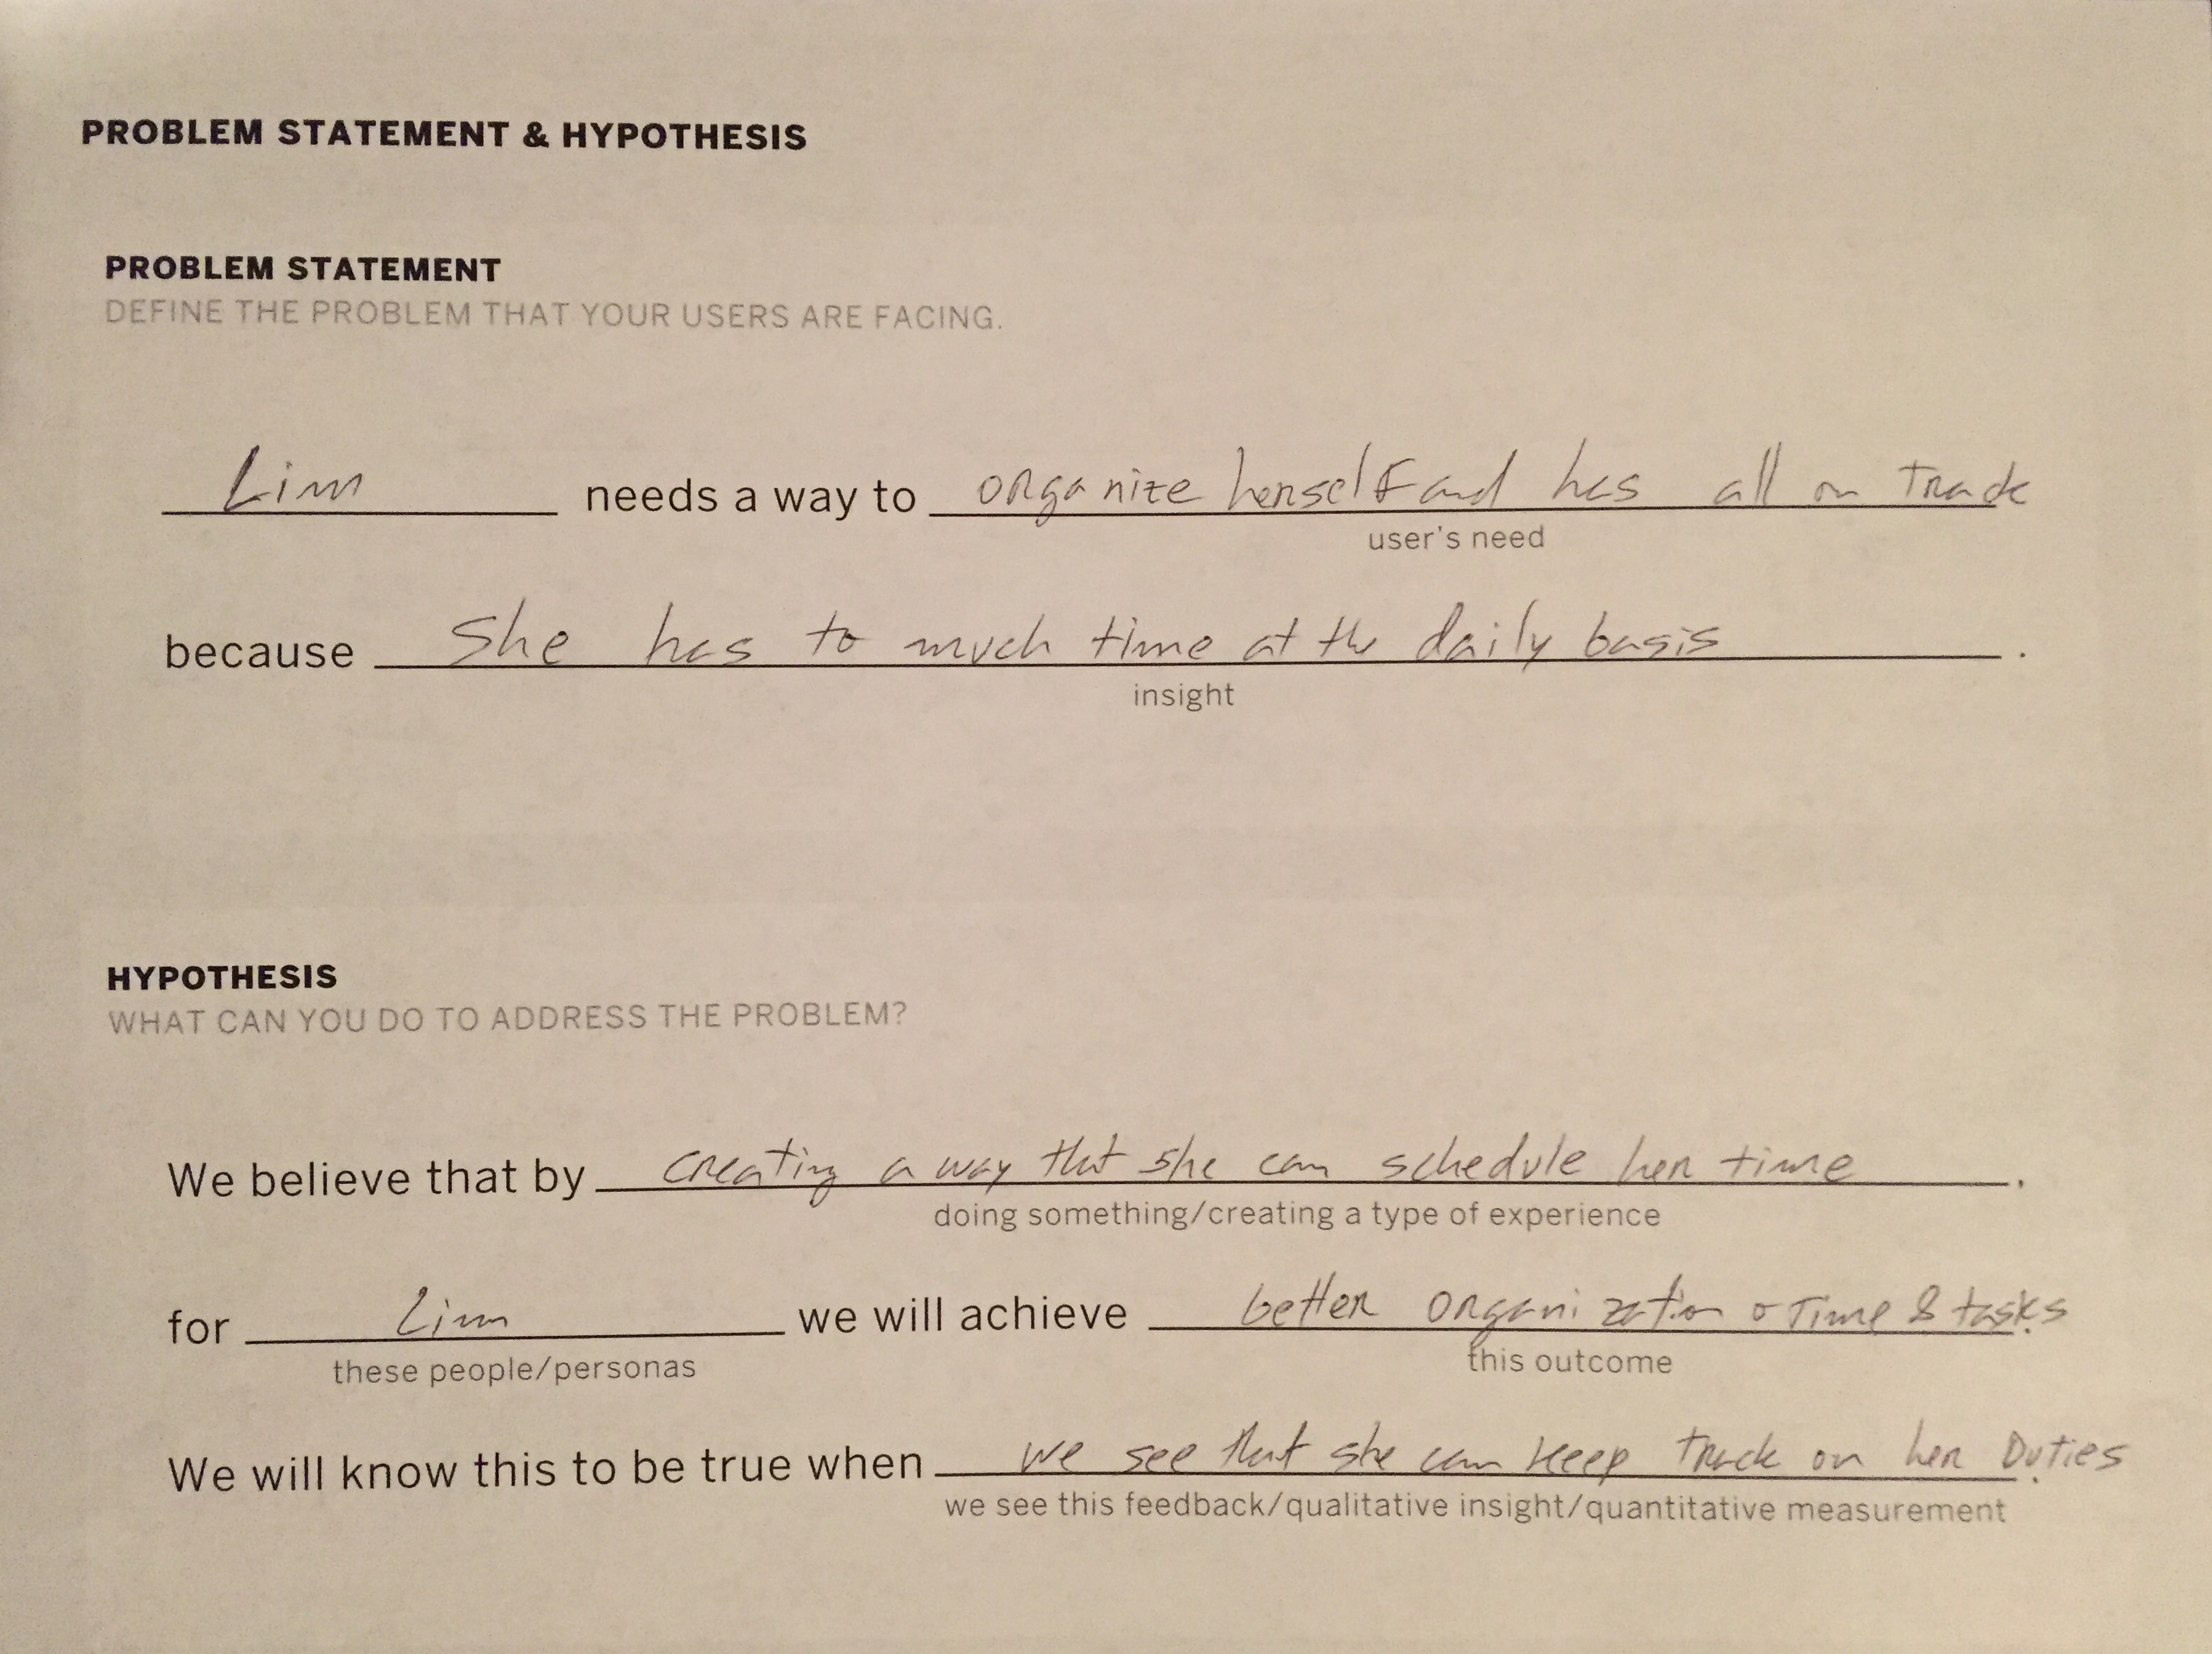 PROBLEM STATEMENT & HYPOTHESIS
PROBLEM STATEMENT
DEFINE THE PROBLEM THAT YOUR USERS ARE FACING.
Lim needs a way to organize herself and has all on Track
user's need
because She has to much time at the daily basis.
insight
HYPOTHESIS
WHAT CAN YOU DO TO ADDRESS THE PROBLEM?
We believe that by creating a way that she can schedule her time.
doing something/creating a type of experience
for Lim we will achieve better organization o Time & tasks.
these people/personas this outcome
We will know this to be true when we see that she can keep track on her Duties.
we see this feedback/qualitative insight/quantitative measurement